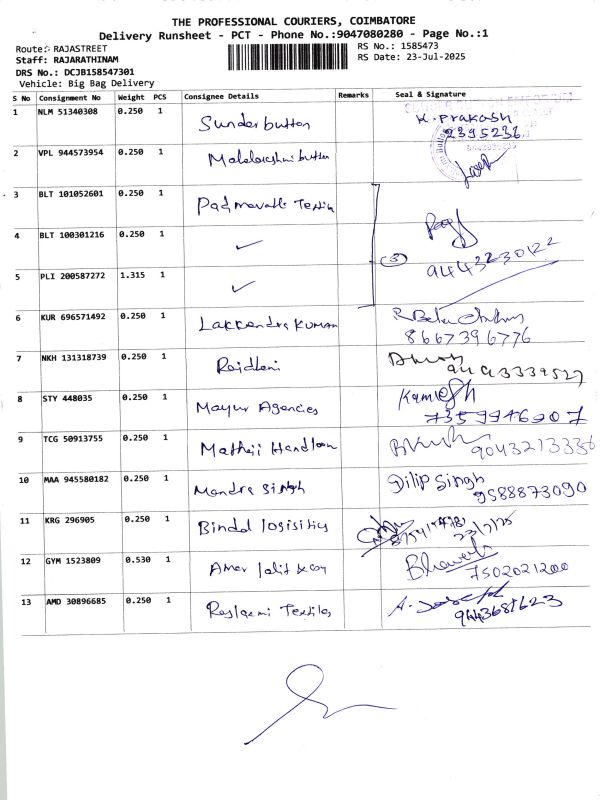 THE PROFESSIONAL COURIERS, COIMBATORE
Delivery Runsheet - PCT - Phone No.:9047080280 - Page No.:1
Route: RAJASTREET
RS No.: 1585473
Staff: RAJARATHINAM
RS Date: 23-Jul-2025
DRS No.: DCJB158547301
Vehicle: Big Bag Delivery
S No Consignment No Weight PCS Consignee Details Remarks Seal & Signature
1 NLM 51340308 0.250 1 Sunder button K. Prakash
2395236
2 VPL 944573954 0.250 1 button
3 BLT 101052601 0.250 1 Padmavathi
4 BLT 100301216 0.250 1 ✓
(3) 9443230122
5 PLI 200587272 1.315 1 ✓
6 KUR 696571492 0.250 1 Kuman
8667396776
7 NKH 131318739 0.250 1
8 STY 448035 0.250 1 Mayur Agencies Kamlesh
7359946007
9 TCG 50913755 0.250 1 Handloom 9043213336
10 MAA 945580182 0.250 1 Singh Dilip Singh
9588873090
11 KRG 296905 0.250 1 Bindal 23/7/25
12 GYM 1523809 0.530 1 Amar
7502021200
13 AMD 30896685 0.250 1 Textiles A. Joseph
9443681623